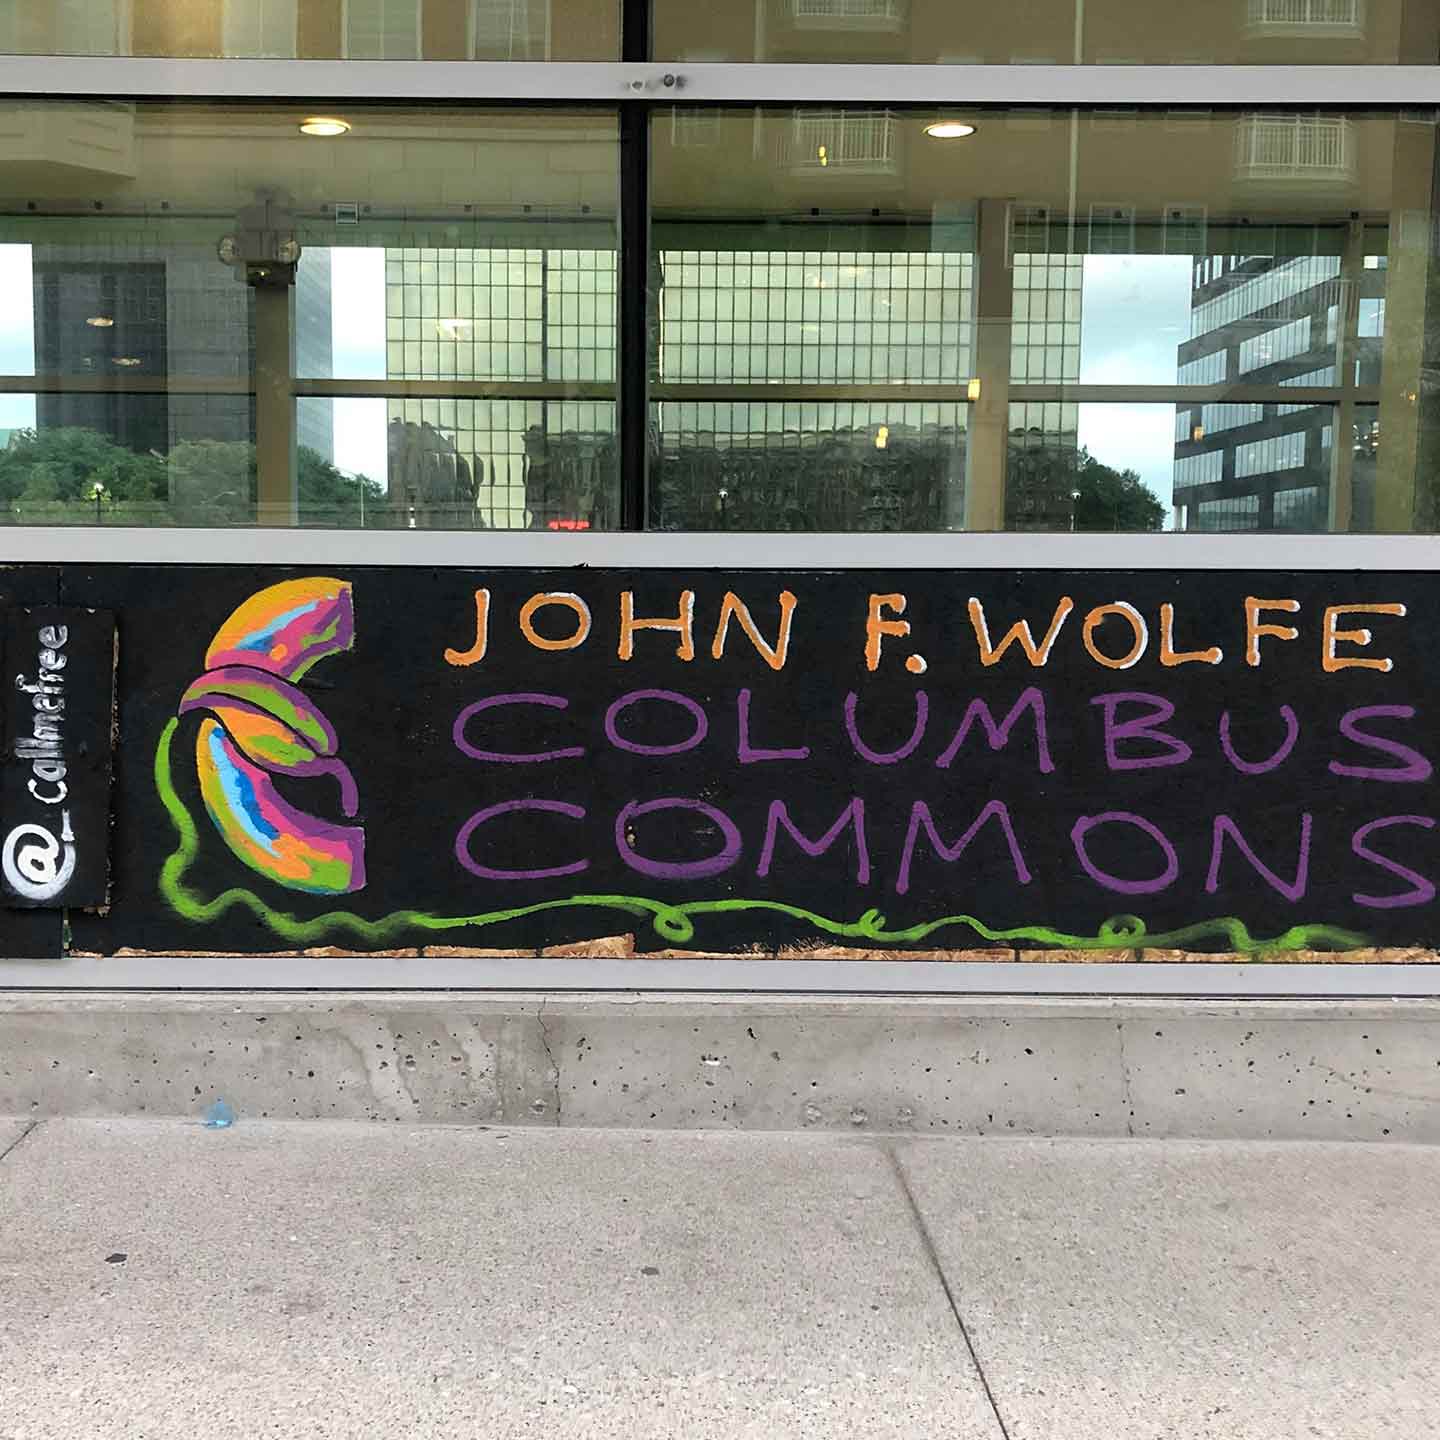 @_callmefree
JOHN F. WOLFE
COLUMBUS
COMMONS